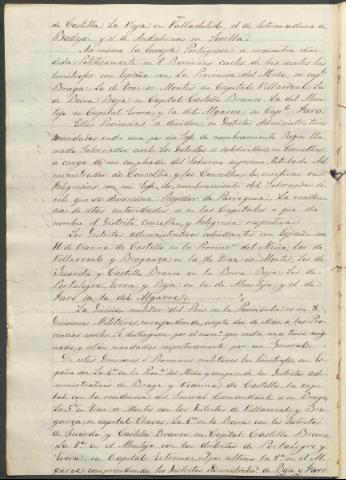 de Castilla La Vieja en Valladolid, el de Extremadura a
Badajoz y el de Andalucia en Sevilla.
Asi mismo la Europa Portuguesa se encuentra divi
dida Politicamente en 8 Provincias civiles de las cuales las
limitrofes con España son La Provincia del Miño, su capl
Braga. La de Tras os Montes su Capital Villarreal. La
de Beira Baja su Capital Castello Branco. La del Alem
tejo su Capital Evora y la del Algarve su Capl Faro.
Estas Provincias se dividen en Distritos Administrativos
mandados cada uno por un Jefe de nombramiento Regio lla
mado Gobernador civil. Los Distritos se subdividen en Concelhos
a cargo de un empleado del Gobierno supremo titulado Ad
ministrador de Concelho, y los Concelhos se
Feligresias con un Jefe de nombramiento del Gobernador ci
vil que se denomina Regedor de Parroquia. La residen
cia de estas autoridades es en las Capitales o que da
nombre el Distrito Concelho, y Feligresia respectiva.
Los Distritos administrativos colindantes con España son
el de Vianna de Castello en la Provincia del Miño; Los de
Villarreal y Braganza en la de Tras os Montes; Los de
Guarda y Castello Branco en la Beira Baja; Los de
Portalegre, Evora y Beja en la de Alemtejo; y el de
Faro en la del Algarve.
La Division militar del Pais en la Peninsula es en 8
Divisiones Militares
vincias civiles. Se distinguen por el num.º que cada una tiene asig
nado, y estan mandadas respectivamente por un General.
De estas Divisiones o Provincias militares las limitrofes con Es
paña son La 4ª en la Provª del Miño y comprende los Distritos ad
ministrativos de Braga y Vianna de Castello, su capi
tal con la residencia del General Comandante es en Braga.
La 5ª en Tras os Montes con los Distritos de Villarreal y Bra
ganza, su capital Chaves. La 6ª en la Beira con los distritos
de Guarda y Castello Branco, su Capital Castello Branco.
La 7ª en el Alemtejo con los distritos de Portalegre y
Evora, su Capital Estremoz. Y por ultimo la 8ª en el Al
garve comprendiendo los Distritos Administrativos de Beja y Faro